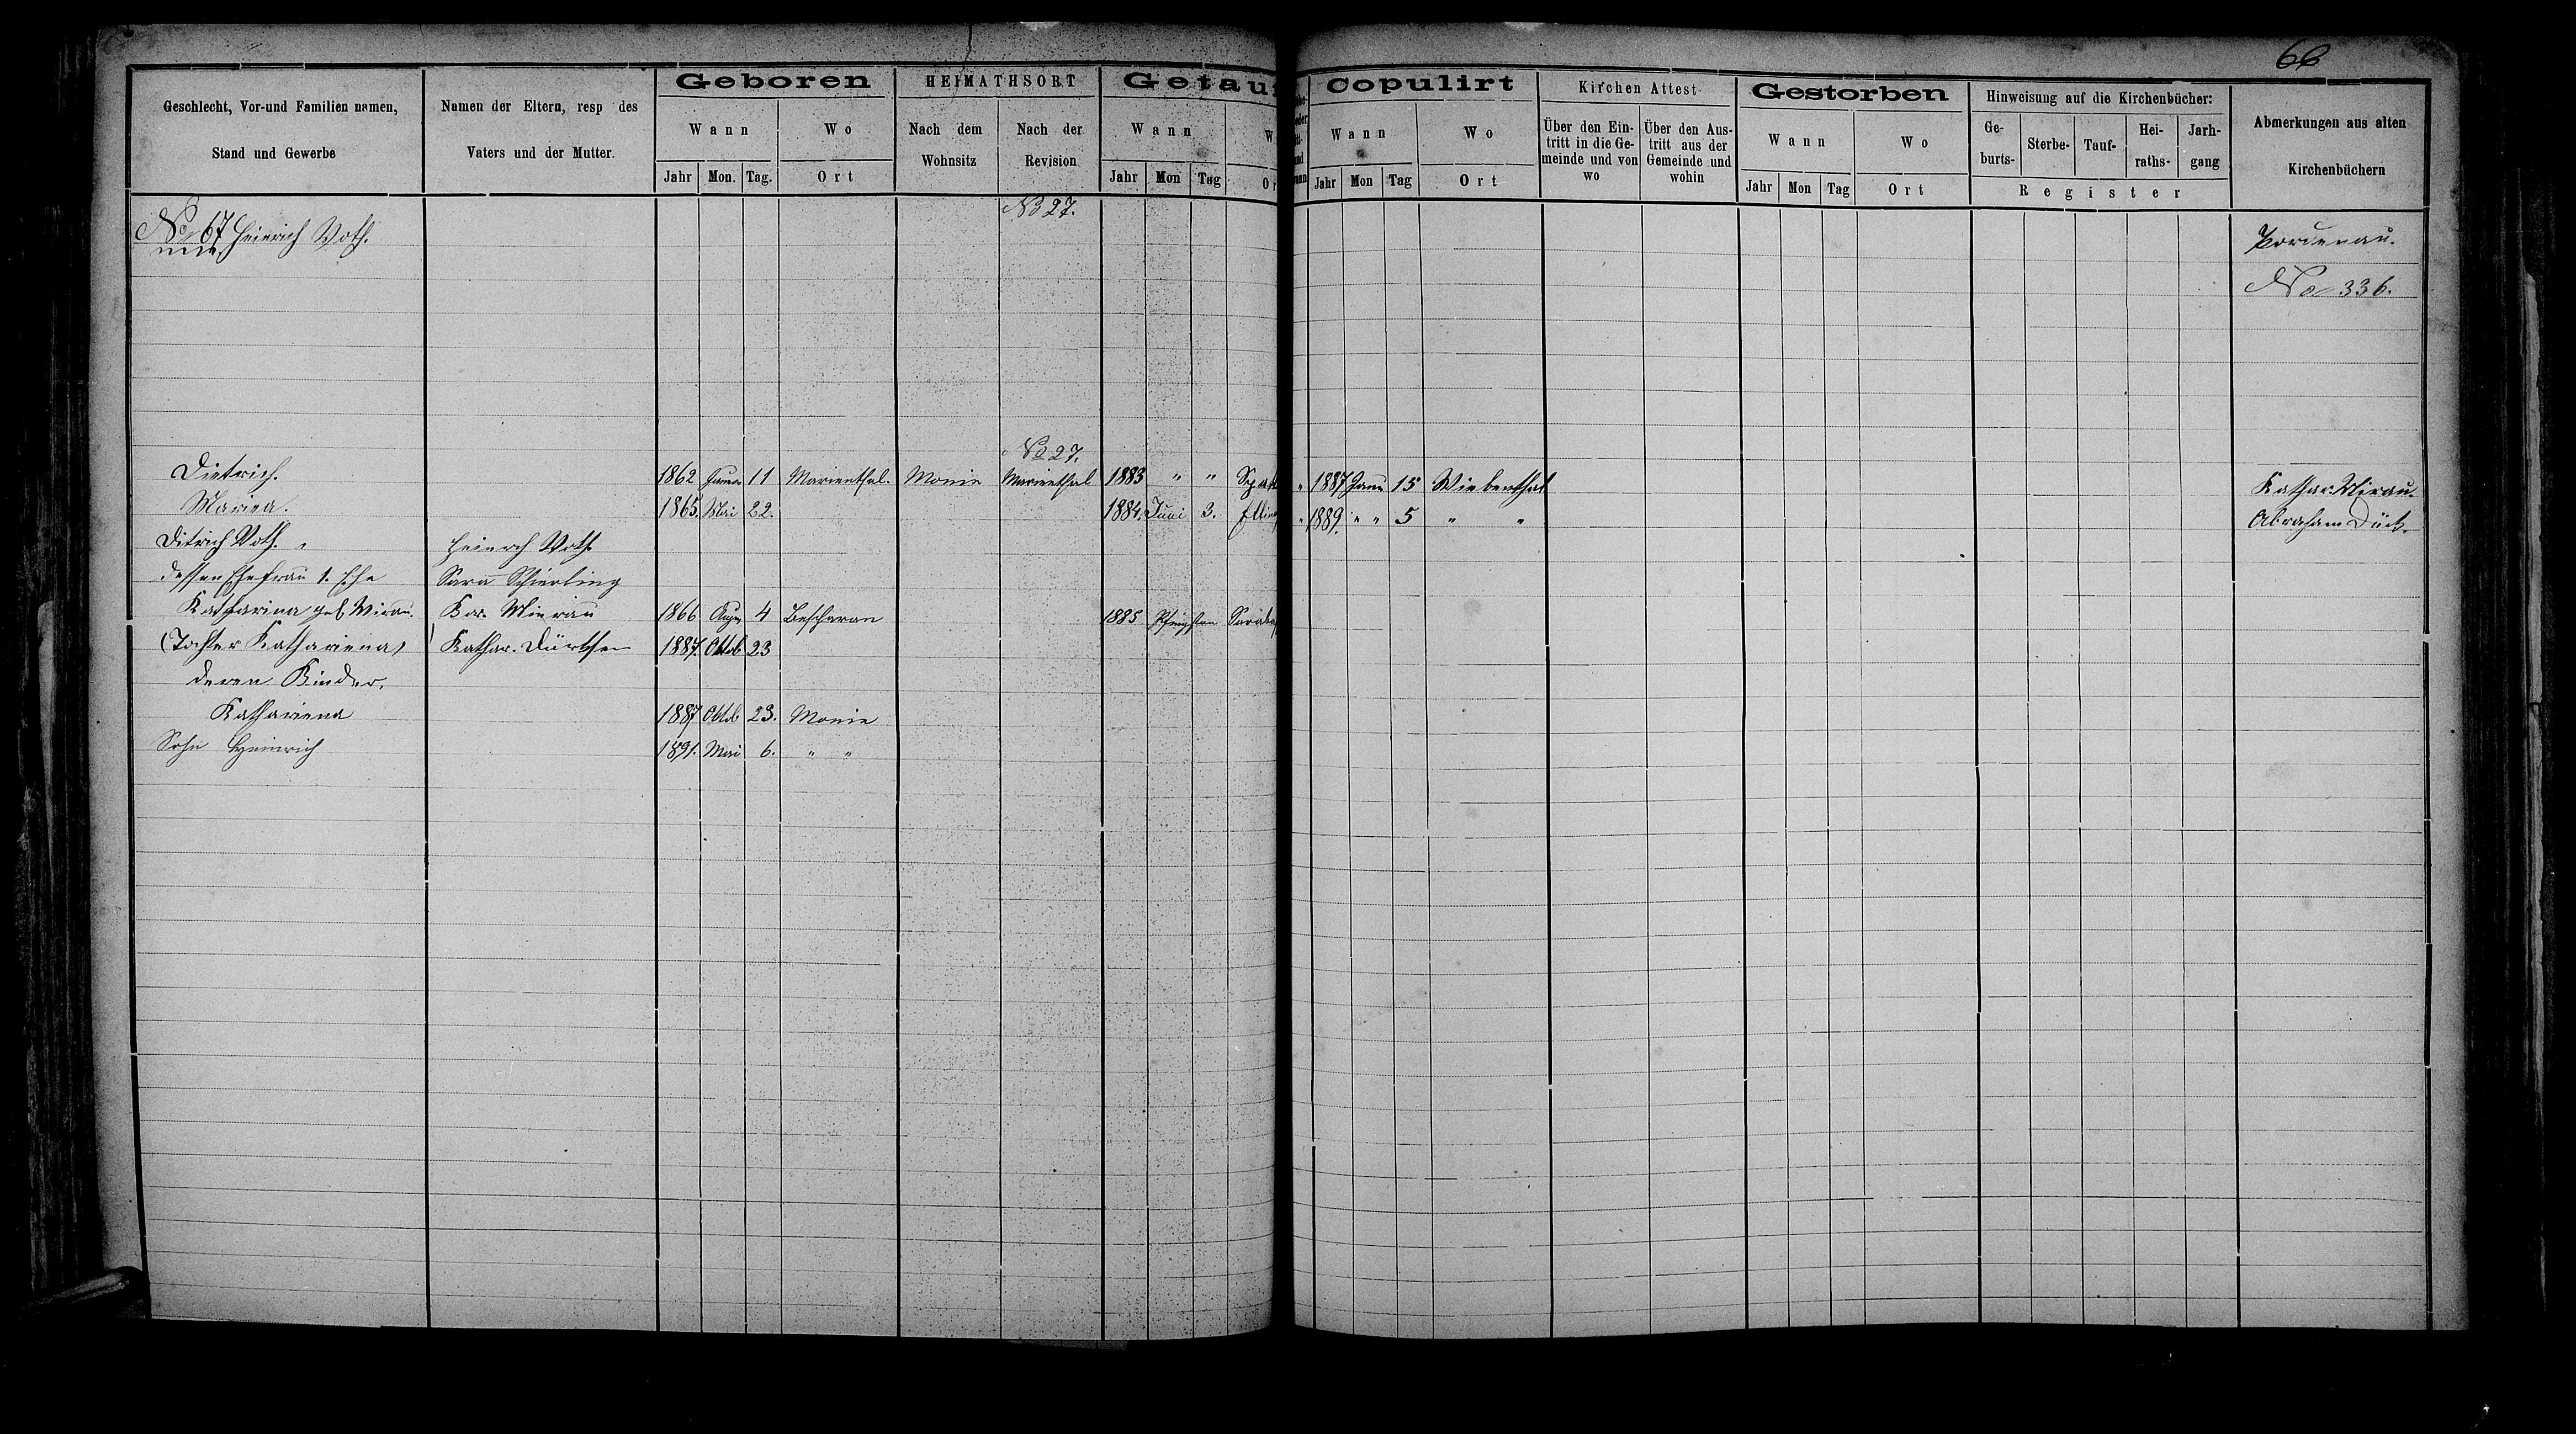 66
Geschlecht, Vor-und Familien namen, Stand und Gewerbe
Namen der Eltern, resp des Vaters und der Mutter.
Geboren
Wann
Wo
Jahr Mon. Tag. Ort
HEIMATHSORT
Nach dem Wohnsitz
Nach der Revision
Getauf
Wann
Jahr Mon Tag
Copulirt
Wann
Wo
Jahr Mon Tag Ort
Kirchen Attest
Über den Ein-tritt in die Ge-meinde und von wo
Über den Aus-tritt aus der Gemeinde und wohin
Gestorben
Wann
Wo
Jahr Mon Tag Ort
Hinweisung auf die Kirchenbücher:
Ge-burts- Sterbe- Tauf- Hei-raths- Jarh-gang
Register
Abmerkungen aus alten Kirchenbüchern
No 27.
No 67 Heinrich Voth. Pordenau.
No 336.
No 27.
Dietrich. 1862 Janua 11 Marienthal. Monie Marienthal 1883 " " " 1887 Janu 15 Wiebenthal Kathar. Mirau.
Mariea. 1865. Mai 22. 1884. Juni 3. " 1889. " " 5 " " Abraham Dück.
Ditrich Voth. Heinrch Voth
dessen Ehefrau 1. Ehe Sara Schierling
Katharina geb. Mirau. Kor. Mierau 1866 Aug 4 1885 Pfingsten
(Tochter Kathariena) Kathar. Dürksen 1887. Oktob 23
deren Kinder.
Kathariena 1887 Oktob 23. Monie
Sohn Heinrich 1891. Mai 6. " "